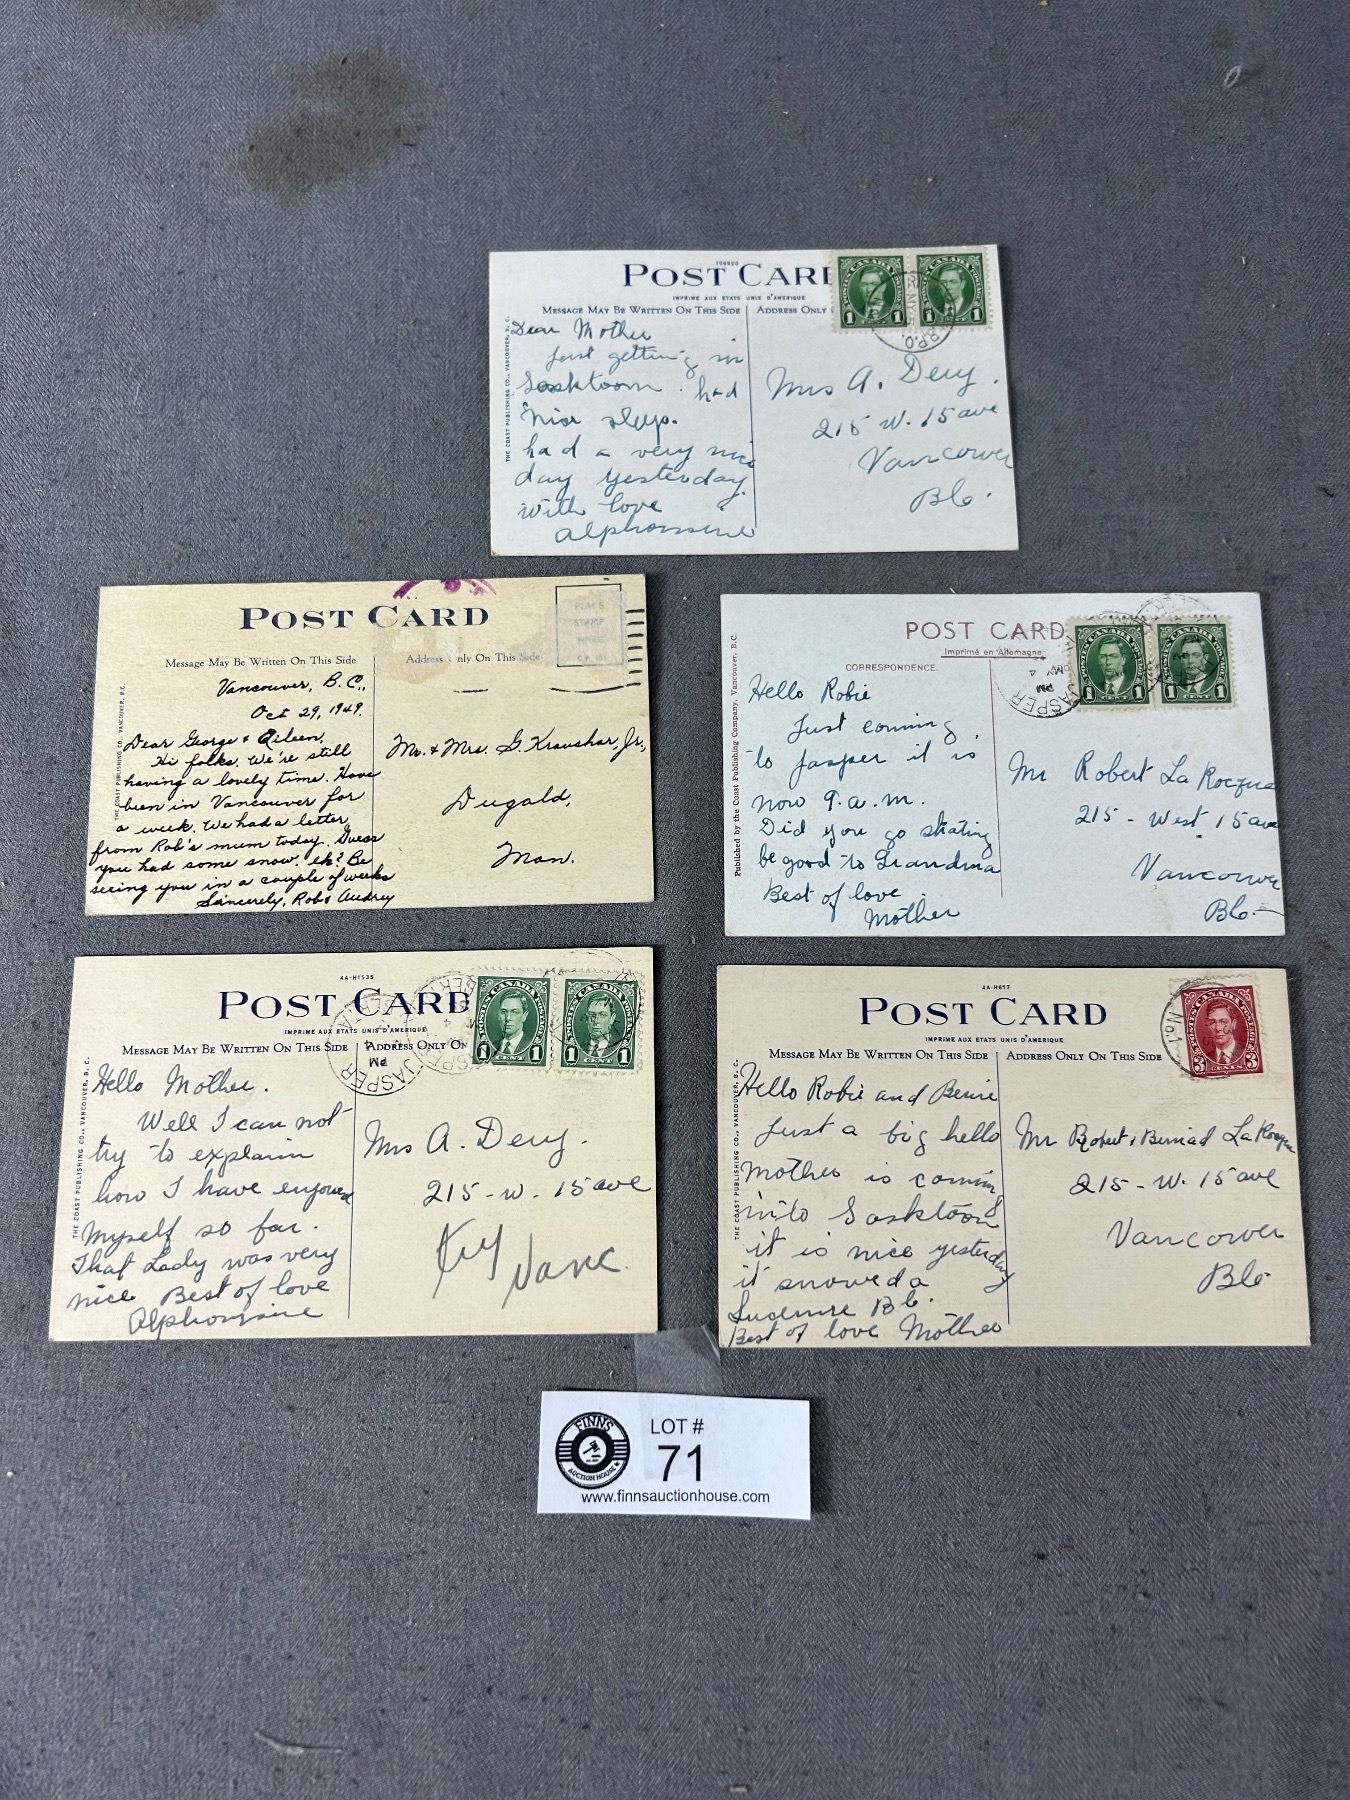 106820
POST CARD
IMPRIME AUX ETATS UNIS D'AMERIQUE
MESSAGE MAY BE WRITTEN ON THIS SIDE
ADDRESS ONLY
THE COAST PUBLISHING CO., VANCOUVER, B. C.
POSTES CANADA POSTAGE
1 CENT 1
POSTES CANADA POSTAGE
1 CENT 1
R.P.O.
Dear Mother
Just getting in
Sasktoon had
nice sleep.
had a very nice
day yesterday.
With love
Alphonsine
Mrs A. Dery.
215 W. 15 ave
Vancouver
BC.
POST CARD
PLACE
STAMP
HERE
Message May Be Written On This Side
Address Only On This Side
THE COAST PUBLISHING CO., VANCOUVER, B.C.
Vancouver, B.C.,
Oct 29, 1949.
Dear George & Eileen,
Hi folks. We're still
having a lovely time. Have
been in Vancouver for
a week. We had a letter
from Rob's mum today. Guess
you had some snow, eh? Be
seeing you in a couple of weeks
Sincerely, Rob & Audrey
Mr. & Mrs. G. Kraushar, Jr.,
Dugald,
Man.
POST CARD
Imprimé en Allemagne
CORRESPONDENCE
Published by the Coast Publishing Company, Vancouver, B.C.
POSTES CANADA POSTAGE
1 CENT 1
POSTES CANADA POSTAGE
1 CENT 1
JASPER
PM
MY 4
Hello Robie
Just coming
to Jasper it is
now 9.a.m.
Did you go skating
be good to Grandma
Best of love
Mother
Mr Robert La Rocque
215 - West 15 ave
Vancouver
BC-
4A-H1535
POST CARD
IMPRIME AUX ETATS UNIS D'AMERIQUE
MESSAGE MAY BE WRITTEN ON THIS SIDE
ADDRESS ON
THE COAST PUBLISHING CO., VANCOUVER, B. C.
POSTES CANADA POSTAGE
1 CENT 1
POSTES CANADA POSTAGE
1 CENT 1
JASPER
PM
Hello Mother.
Well I can not
try to explain
how I have enjoyed
myself so far.
That Lady was very
nice Best of love
Alphonsine
Mrs A. Dery.
215 - W. 15 ave
Vanc.
4A-H617
POST CARD
IMPRIME AUX ETATS UNIS D'AMERIQUE
MESSAGE MAY BE WRITTEN ON THIS SIDE
ADDRESS ONLY ON THIS SIDE
THE COAST PUBLISHING CO., VANCOUVER, B. C.
POSTES CANADA POSTAGE
3 CENTS 3
No 1
Hello Robie and Bernie
Just a big hello
Mother is coming
into Sasktoon
it is nice yesterday
it snowed a
BC.
Best of love Mother
Mr Robert, Bernard LaRocque
215 - W. 15 ave
Vancouver
BC
FINNS
AUCTION HOUSE
LOT #
71
www.finnsauctionhouse.com